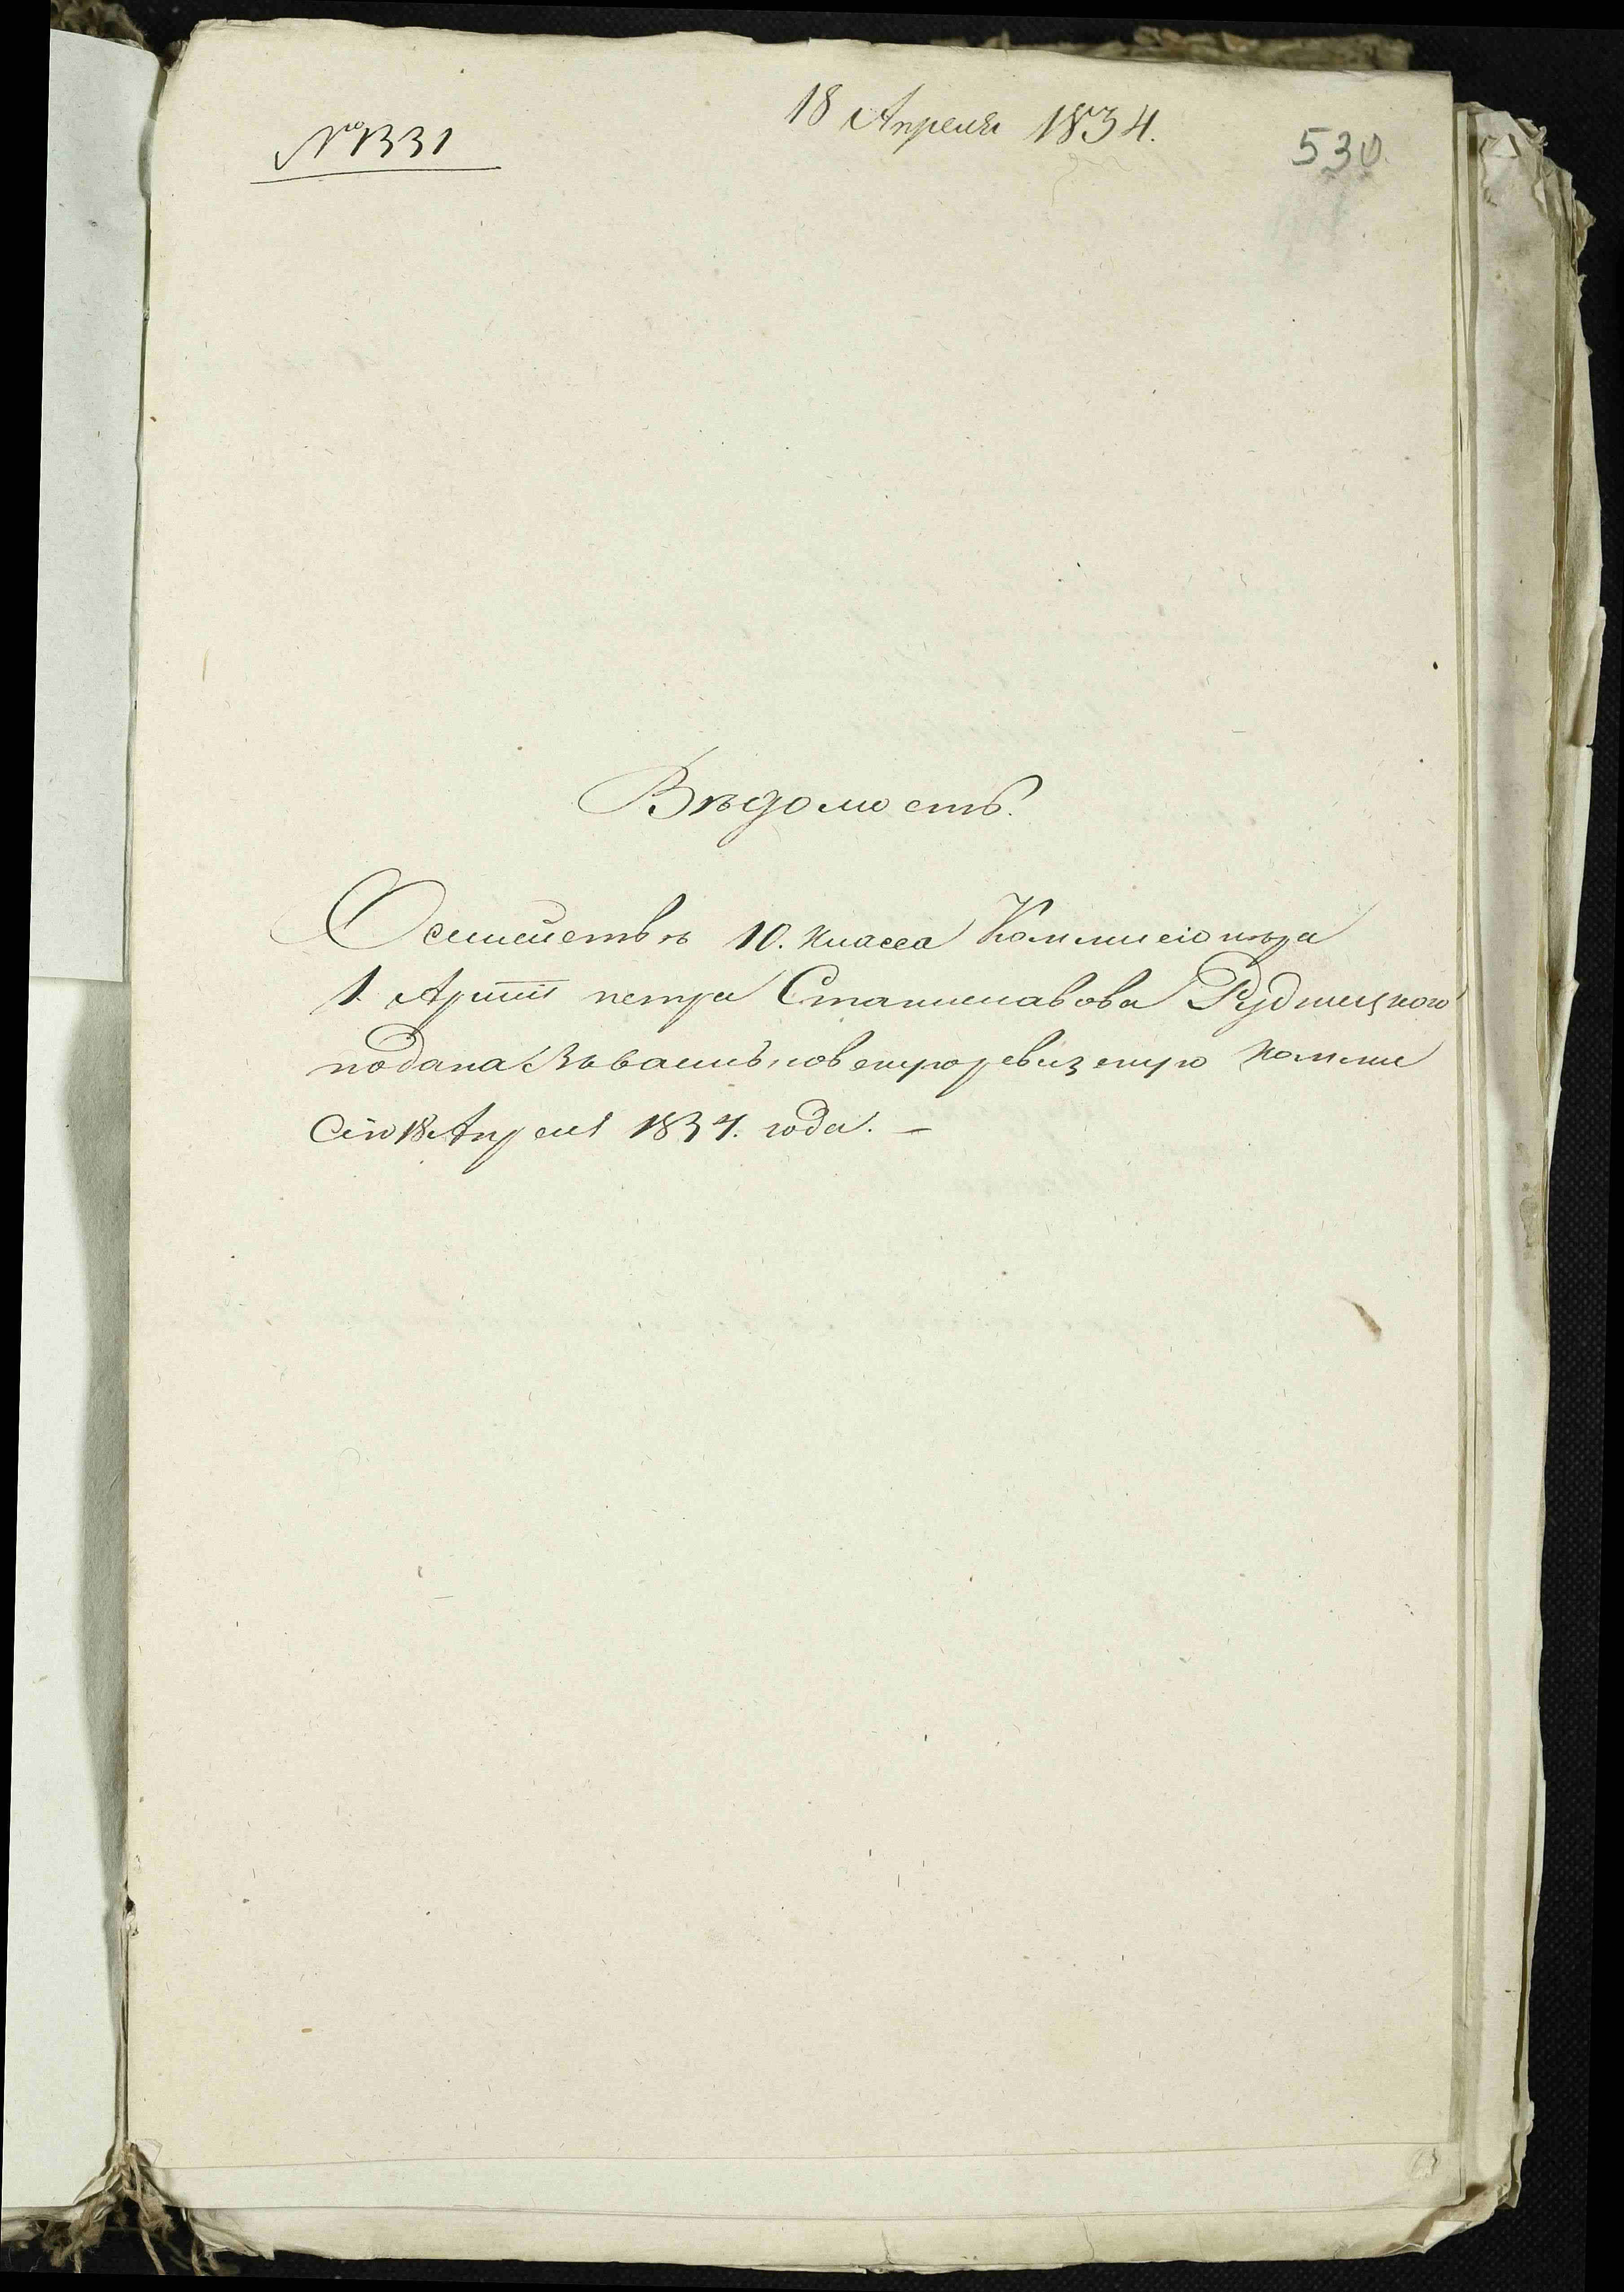 № 1331
18 Апреля 1834.
530.
Вѣдомость.
О семействѣ 10. класса Коммисіонера
1. Арміи петра Станиславова Рудницкого
подана Въ васильковскую ревизскую комми
сію 18 Апреля 1834. года. —